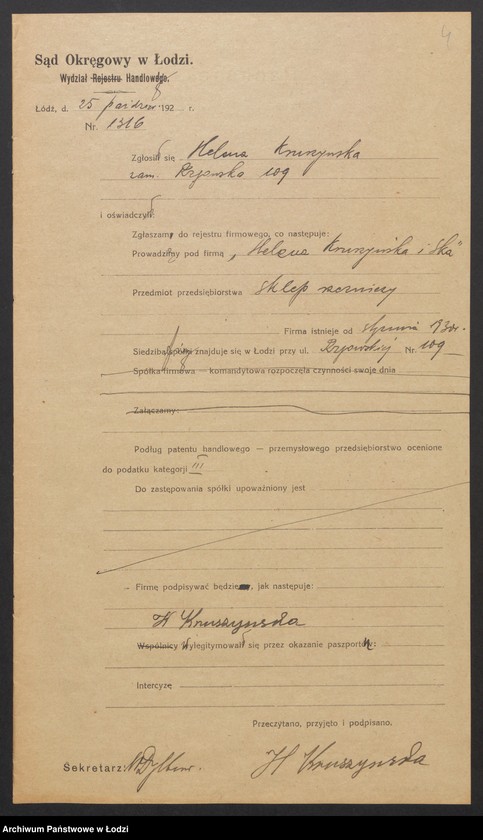 4
Sąd Okręgowy w Łodzi.
Wydział Rejestru Handlowego.
Łódź, d. 25 paździer 192 r.
Nr. 1316
Zgłosił się Helena Kruszyńska
zam. Rzgowska 109
i oświadczył:
Zgłaszamy do rejestru firmowego, co następuje:
Prowadzimy pod firmą „Helena Kruszyńska i Ska"
Przedmiot przedsiębiorstwa sklep rzeźniczy
Firma istnieje od stycznia 1930r.
Siedziba znajduje się w Łodzi przy ul. Rzgowskiej Nr. 109
Spółka firmowa — komandytowa rozpoczęła czynności swoje dnia
Załączamy:
Podług patentu handlowego — przemysłowego przedsiębiorstwo ocenione
do podatku kategorji III
Do zastępowania spółki upoważniony jest
Firmę podpisywać będzie, jak następuje:
H Kruszynska
Wspólnicy wylegitymował się przez okazanie paszportów:
Intercyzę
Przeczytano, przyjęto i podpisano.
Sekretarz: H Kruszynska
Archiwum Państwowe w Łodzi